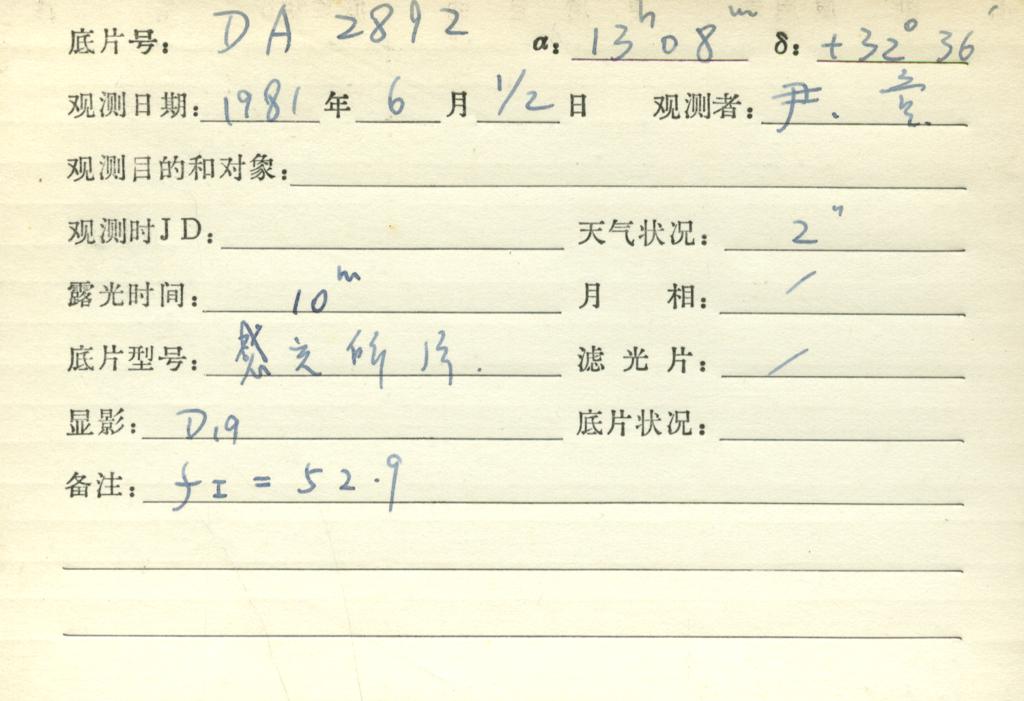 底片号： DA 2892 α： 13ʰ08ᵐ δ： +32° 36′
观测日期： 1981 年 6 月 1/2 日 观测者： 尹.
观测目的和对象：
观测时JD： 天气状况： 2"
露光时间： 10ᵐ 月 相： /
底片型号： 滤 光 片： /
显影： D19 底片状况：
备注： fI = 52.9